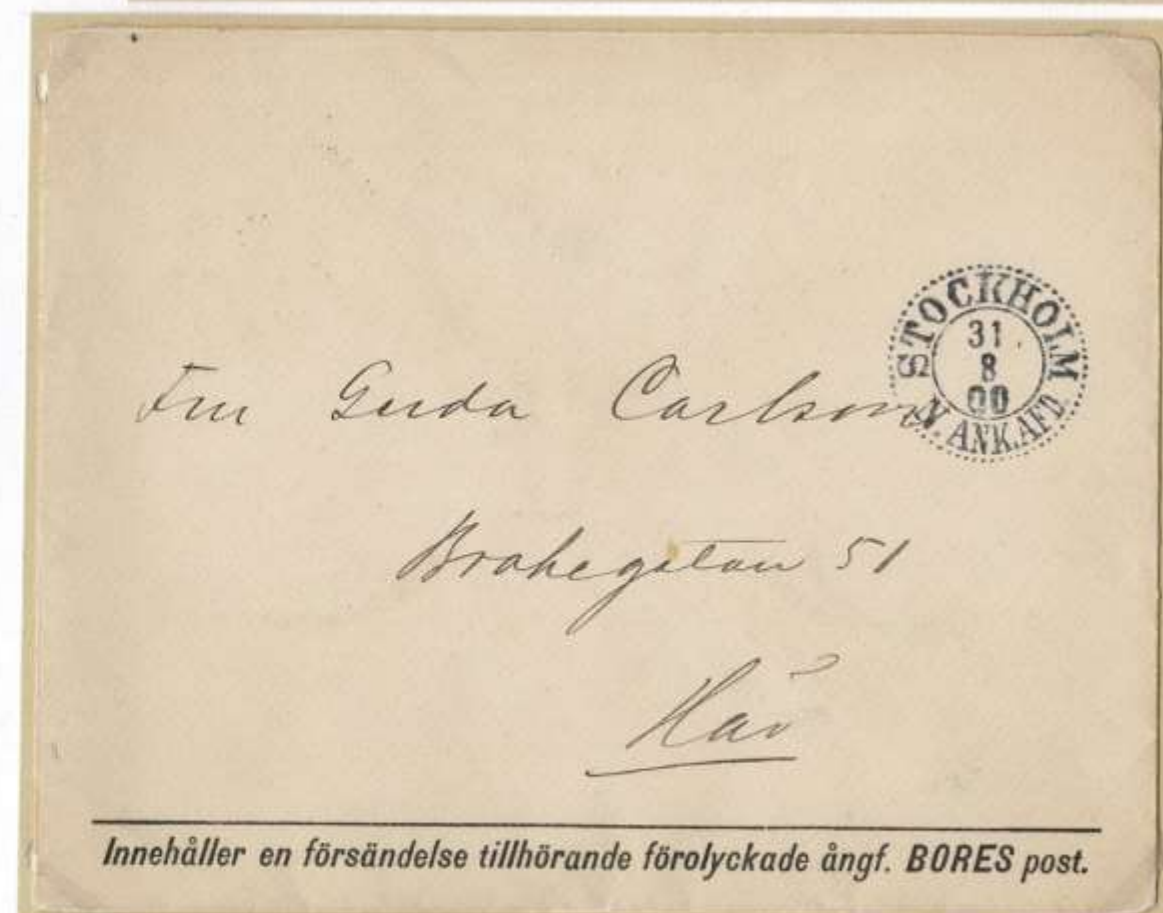 STOCKHOLM
31
8
00
N. ANK.AFD.
Fru Gerda Carlson
Brahegatan 51
Här
Innehåller en försändelse tillhörande förolyckade ångf. BORES post.